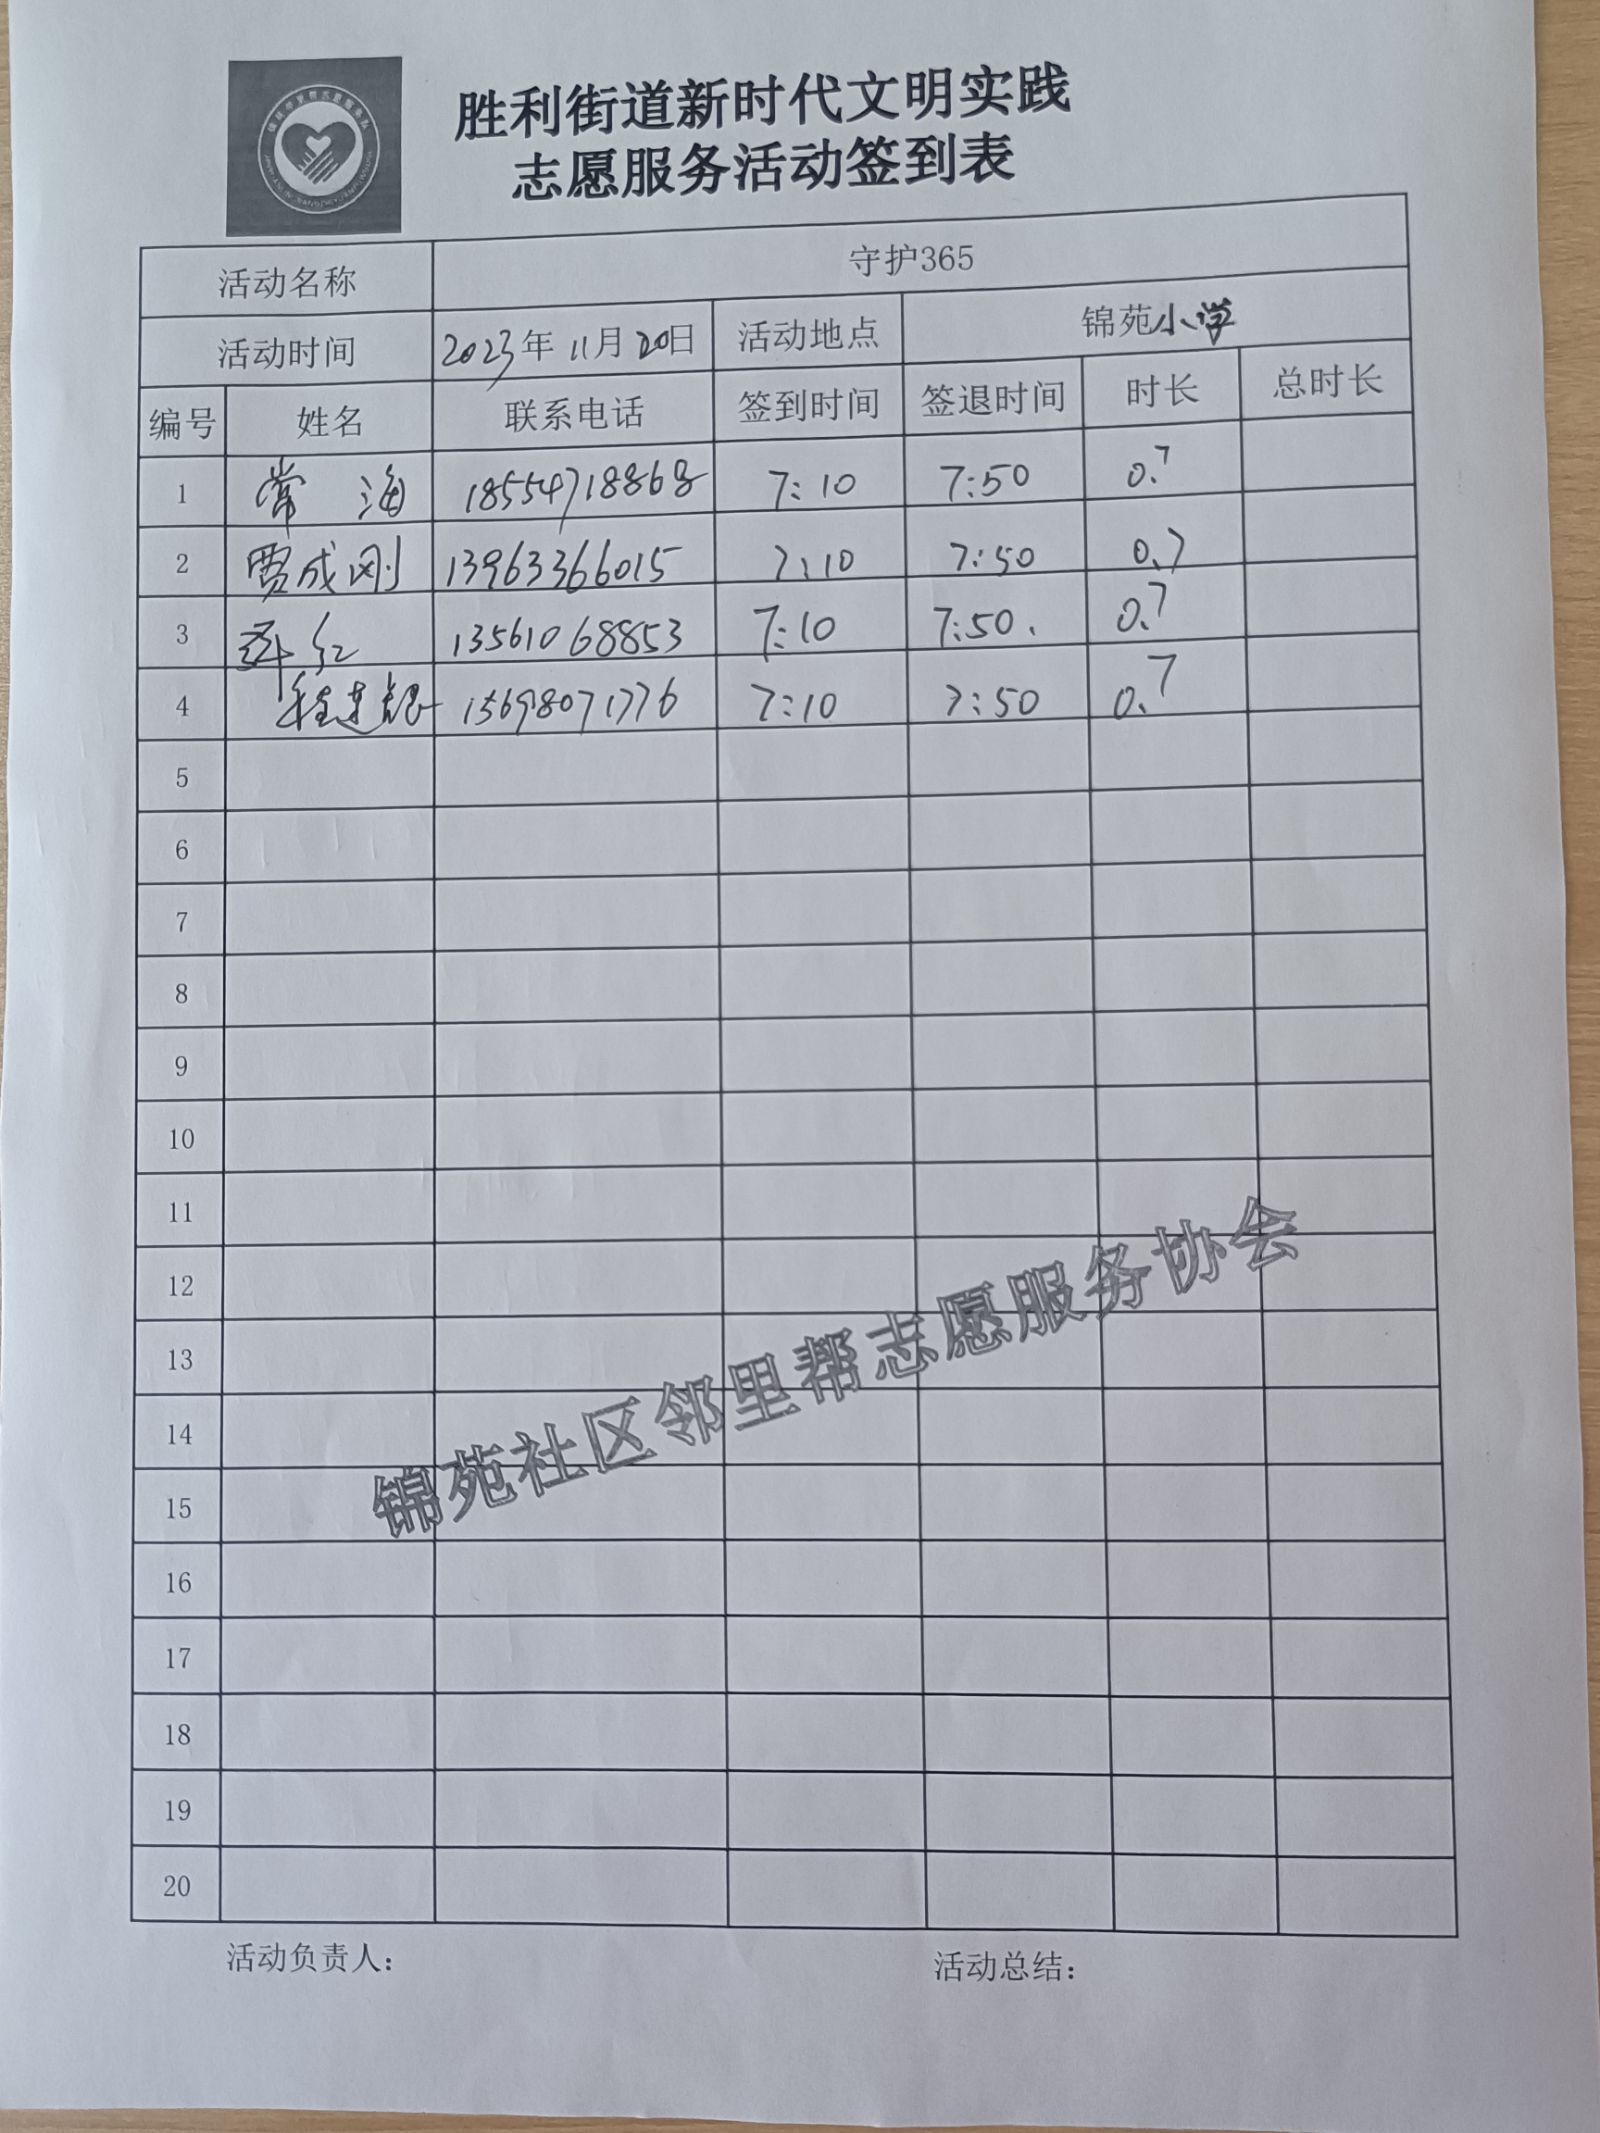 胜利街道新时代文明实践
志愿服务活动签到表
活动名称 守护365
活动时间 2023年 11月 20日 活动地点 锦苑小学
编号 姓名 联系电话 签到时间 签退时间 时长 总时长
1 常海 18554718868 7:10 7:50 0.7
2 贾成刚 13963366015 7:10 7:50 0.7
3 红 13561068853 7:10 7:50. 0.7
4 15698071776 7:10 7:50 0.7
5
6
7
8
9
10
11
12
13
14
15
16
17
18
19
20
锦苑社区邻里帮志愿服务协会
活动负责人: 活动总结: